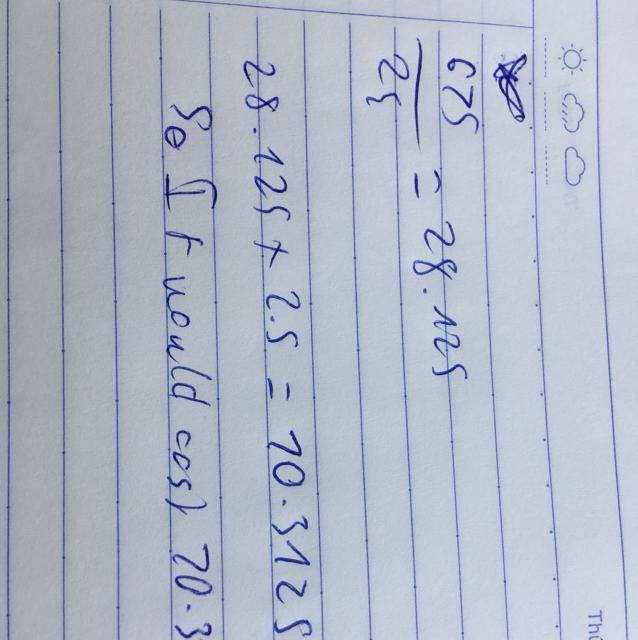 675
24
= 28.125
28.125 x 2.5 = 70.3125
So It would cost 70.3